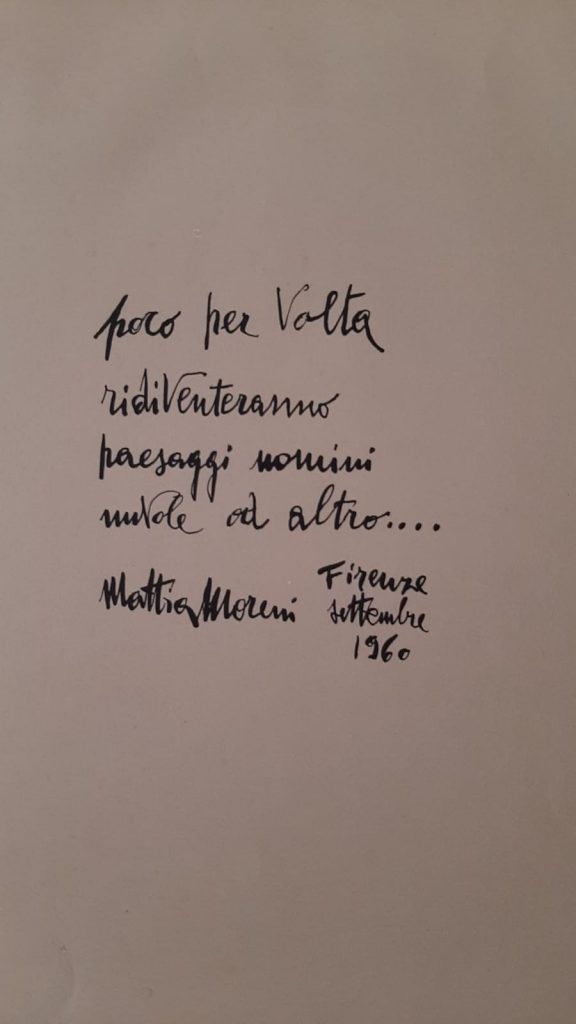 poco per Volta
ridiVenteranno
paesaggi uomini
nuVole od altro....
Mattia Moreni Firenze
settembre
1960